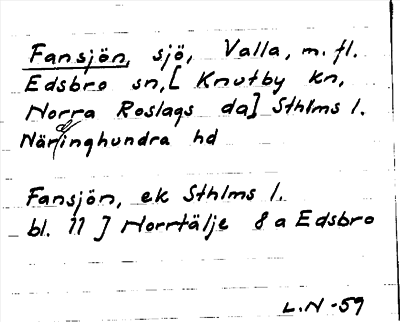 Fansjön, sjö, Valla, m. fl.
Edsbro sn, [ Knutby kn,
Norra Roslags da] Sthlms l.
Närdinghundra hd
Fansjön, ek Sthlms l.
bl. 11 ] Norrtälje 8 a Edsbro
L.N -59